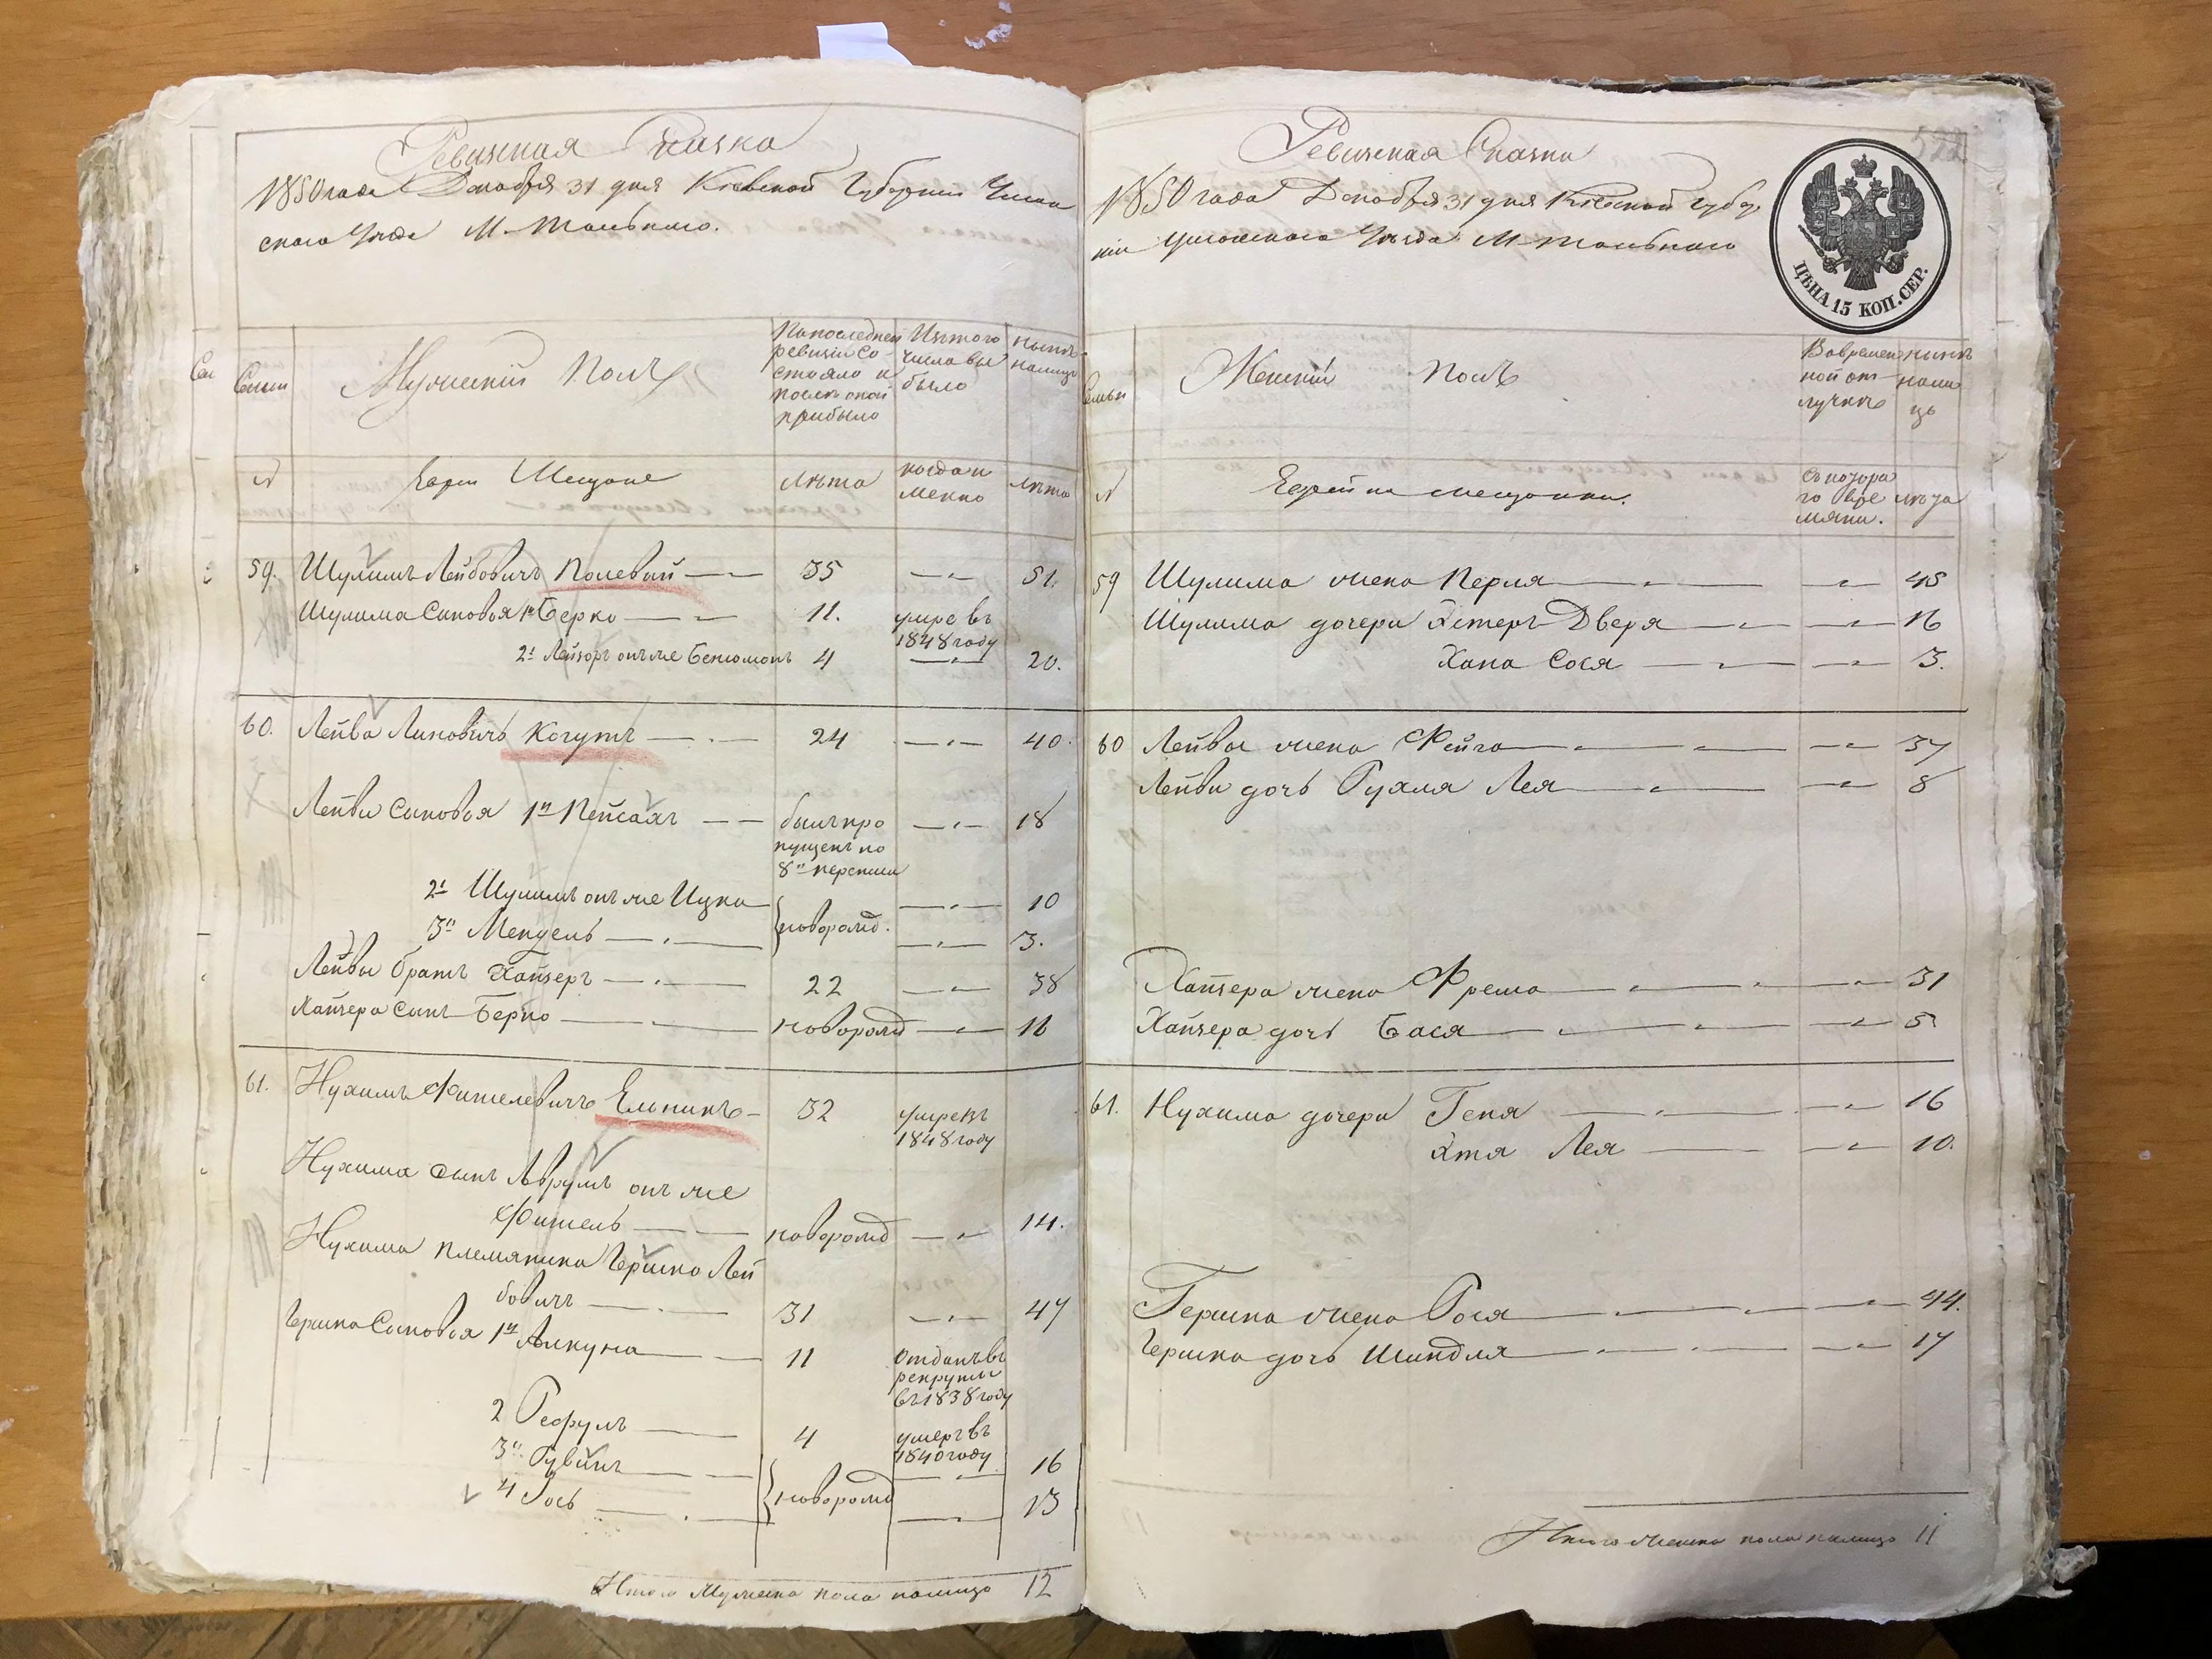 Ревизская Сказка
1850 года Декабря 31 дня Киевской Губернии Уман
скаго Уезда М. Тального.
Семьи
Мужескій Полъ
По последней
ревизіи Со-
стояло и
после оной
прибыло
Изъ того
числа вы
было
ныне
налицо
№
Евреи Мещане
Лета
когда и
менно
лета
59. Шулимъ Лейбовичъ Полевий 35 51.
Шулима Сыновья 1й Берко 11. умре въ
1848 году
2й Лейзоръ онъ же Бенюмонъ 4 20.
60. Лейба Линовичъ Когутъ 24 40.
Лейбы Сыновья 1й Пейсахъ былъ про 18
пущенъ по
8й переписи
2й Шулимъ онъ же Ицко 10
3й Мендель новорожд. 3.
Лейбы братъ Хайзеръ 22 38
Хайзера Сынъ Берко новорожд 16
61. Нухимъ Фишелевичъ Ельникъ 32 умре въ
1848 году
Нухима сынъ Аврумъ онъ же
Фишель новорожд 14.
Нухима племяника Гершко Лей
бовичъ 31 47
Гершка Сыновья 1й Алкуна 11 отданъ въ
рекруты
въ 1838 году
2 Рефулъ 4 умеръ въ
1840 году
3й Рувинъ 16
4 Йось новорожд 13
Итого Мужеска пола налицо 12
522
Ревизская Сказка
1850 года Декабря 31 дня Кіевской Губер
ніи Уманскаго Уезда М. Тального
ЦѢНА 15 КОП. СЕР.
Семьи
Женскій Полъ
Во времен
ной от-
лучке
ныне
нали
цо
№
Еврейки мещанки.
съ котора
го вре
мяни.
лета
59 Шулима жена Перля 45
Шулима дочери Эстеръ Двера 16
Хана Сося 3.
60 Лейбы жена Фейга 37
Лейбы дочь Рухля Лея 8
Хайзера жена Фрема 31
Хайзера дочь Бася 5
61. Нухима дочери Геня 16
Этя Лея 10.
Гершка жена Рося 44.
Гершка дочь Шиндля 17
Итого женска пола налицо 11